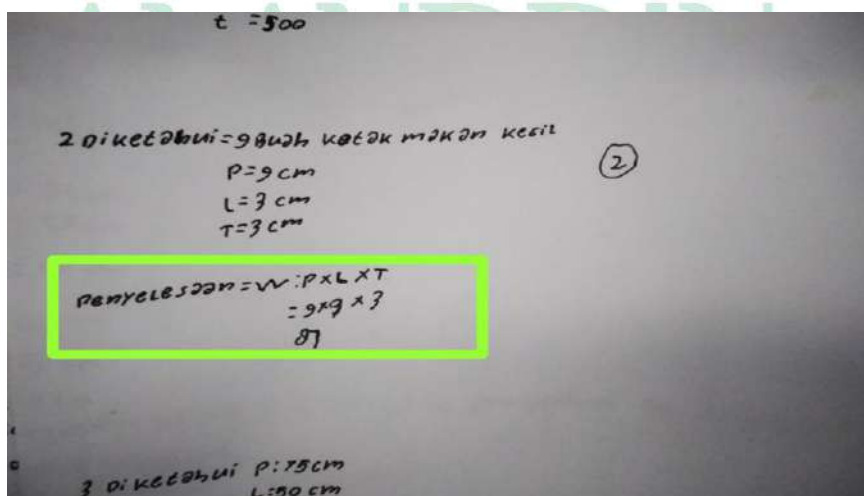 t = 500
2 Diketahui = 9 Buah kotak makan kecil
P = 9 cm
L = 3 cm
T = 3 cm
2
Penyelesaan = V : P x L x T
= 9 x 9 x 3
81
3 Diketahui P : 75 cm
L : 50 cm